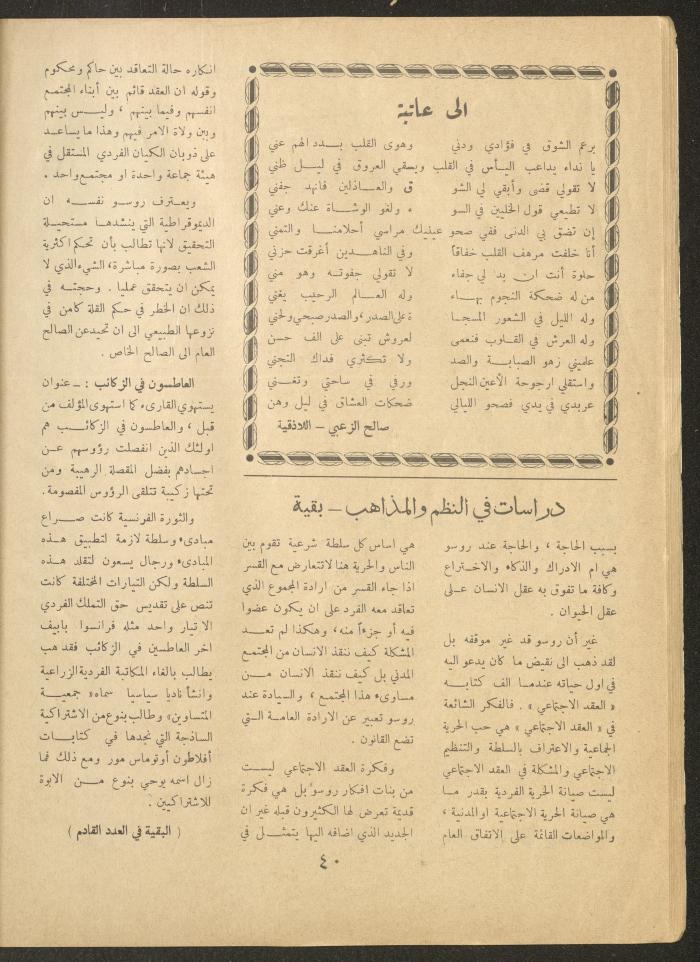 الى عاتبة
برعم الشوق في فؤادي ودني وهوى القلب بدد الهم عني
يا نداء يداعب اليأس في القلب ويسقي العروق في ليل ظني
لا تقولي قضى وأبقي لي الشو ق والعاذلين فانهد جفني
لا تطيعي قول الخليين في السو ء ولغو الوشاة عنك وعني
إن تضق بي الدنى ففي صحو عينيك مراسي أحلامنا والتمني
أنا خلفت مرهف القلب خفاقاً وفي الناهدين أغرقت حزني
حلوة أنت ان بد لي جفاء لا تقولي جفوته وهو مني
من له ضحكة النجوم بهاء وله العالم الرحيب يغني
وله الليل في الشعور المسجا ة على الصدر، والصدر صبحي ولحني
وله العرش في القلوب فنعمى لعروش تبنى على الف حسن
علميني زهو الصبابة والصد ولا تكثري فداك التجني
واستقلي ارجوحة الأعين النجل ورفي في ساحتي وتغني
عربدي في يدي فصحو الليالي ضحكات العشاق في ليل وهن
صالح الزعبي – اللاذقية
دراسات في النظم والمذاهب – بقية
بسبب الحاجة ، والحاجة عند روسو
هي ام الادراك والذكاء والاختراع
وكافة ما تفوق به عقل الانسان على
عقل الحيوان .
غير أن روسو قد غير موقفه بل
لقد ذهب الى نقيض ما كان يدعو اليه
في اول حياته عندما الف كتابه
« العقد الاجتماعي » . فالفكر الشائعة
في « العقد الاجتماعي » هي حب الحرية
الجماعية والاعتراف بالسلطة والتنظيم
الاجتماعي والمشكلة في العقد الاجتماعي
ليست صيانة الحرية الفردية بقدر ما
هي صيانة الحرية الاجتماعية او المدنية ،
والمواضعات القائمة على الاتفاق العام
هي اساس كل سلطة شرعية تقوم بين
الناس والحرية هنا لا تتعارض مع القسر
اذا جاء القسر من ارادة المجموع الذي
تعاقد معه الفرد على ان يكون عضوا
فيه أو جزءاً منه، وهكذا لم تعد
المشكلة كيف ننقذ الانسان من المجتمع
المدني بل كيف ننقذ الانسان من
مساوىء هذا المجتمع ، والسيادة عند
روسو تعبير عن الارادة العامة التي
تضع القانون .
وفكرة العقد الاجتماعي ليست
من بنات افكار روسو بل هي فكرة
قديمة تعرض لها الكثيرون قبله غير ان
الجديد الذي اضافه اليها يتمثل في
انكاره حالة التعاقد بين حاكم ومحكوم
وقوله ان العقد قائم بين أبناء المجتمع
انفسهم وفيما بينهم ، وليس بينهم
وبين ولاة الامر فيهم وهذا ما يساعد
على ذوبان الكيان الفردي المستقل في
هيئة جماعة واحدة او مجتمع واحد .
ويعترف روسو نفسه ان
الديموقراطية التي ينشدها مستحيلة
التحقيق لانها تطالب بأن تحكم اكثرية
الشعب بصورة مباشرة، الشيء الذي لا
يمكن ان يتحقق عمليا . وحجته في
ذلك ان الخطر في حكم القلة كامن في
نزوعها الطبيعي الى ان تحيد عن الصالح
العام الى الصالح الخاص .
العاطسون في الزكائب : – عنوان
يستهوي القارىء كما استهوى المؤلف من
قبل ، والعاطسون في الزكائب هم
اولئك الذين انفصلت رؤوسهم عن
اجسادهم بفضل المقصلة الرهيبة ومن
تحتها زكيبة تتلقى الرؤوس المفصومة.
والثورة الفرنسية كانت صراع
مبادىء وسلطة لازمة لتطبيق هذه
المبادىء ورجال يسعون لتقلد هذه
السلطة ولكن التيارات المختلفة كانت
تنص على تقديس حق التملك الفردي
الا تيار واحد مثله فرانسوا بابيف
اخر العاطسين في الزكائب فقد هب
يطالب بالغاء المكاتبة الفردية الزراعية
وانشأ ناديا سياسيا سماه « جمعية
المتساوين » وطالب بنوع من الاشتراكية
الساذجة التي نجدها في كتابات
أفلاطون أو توماس مور ومع ذلك فما
زال اسمه يوحي بنوع من الابوة
للاشتراكيين .
( البقية في العدد القادم )
٤٠